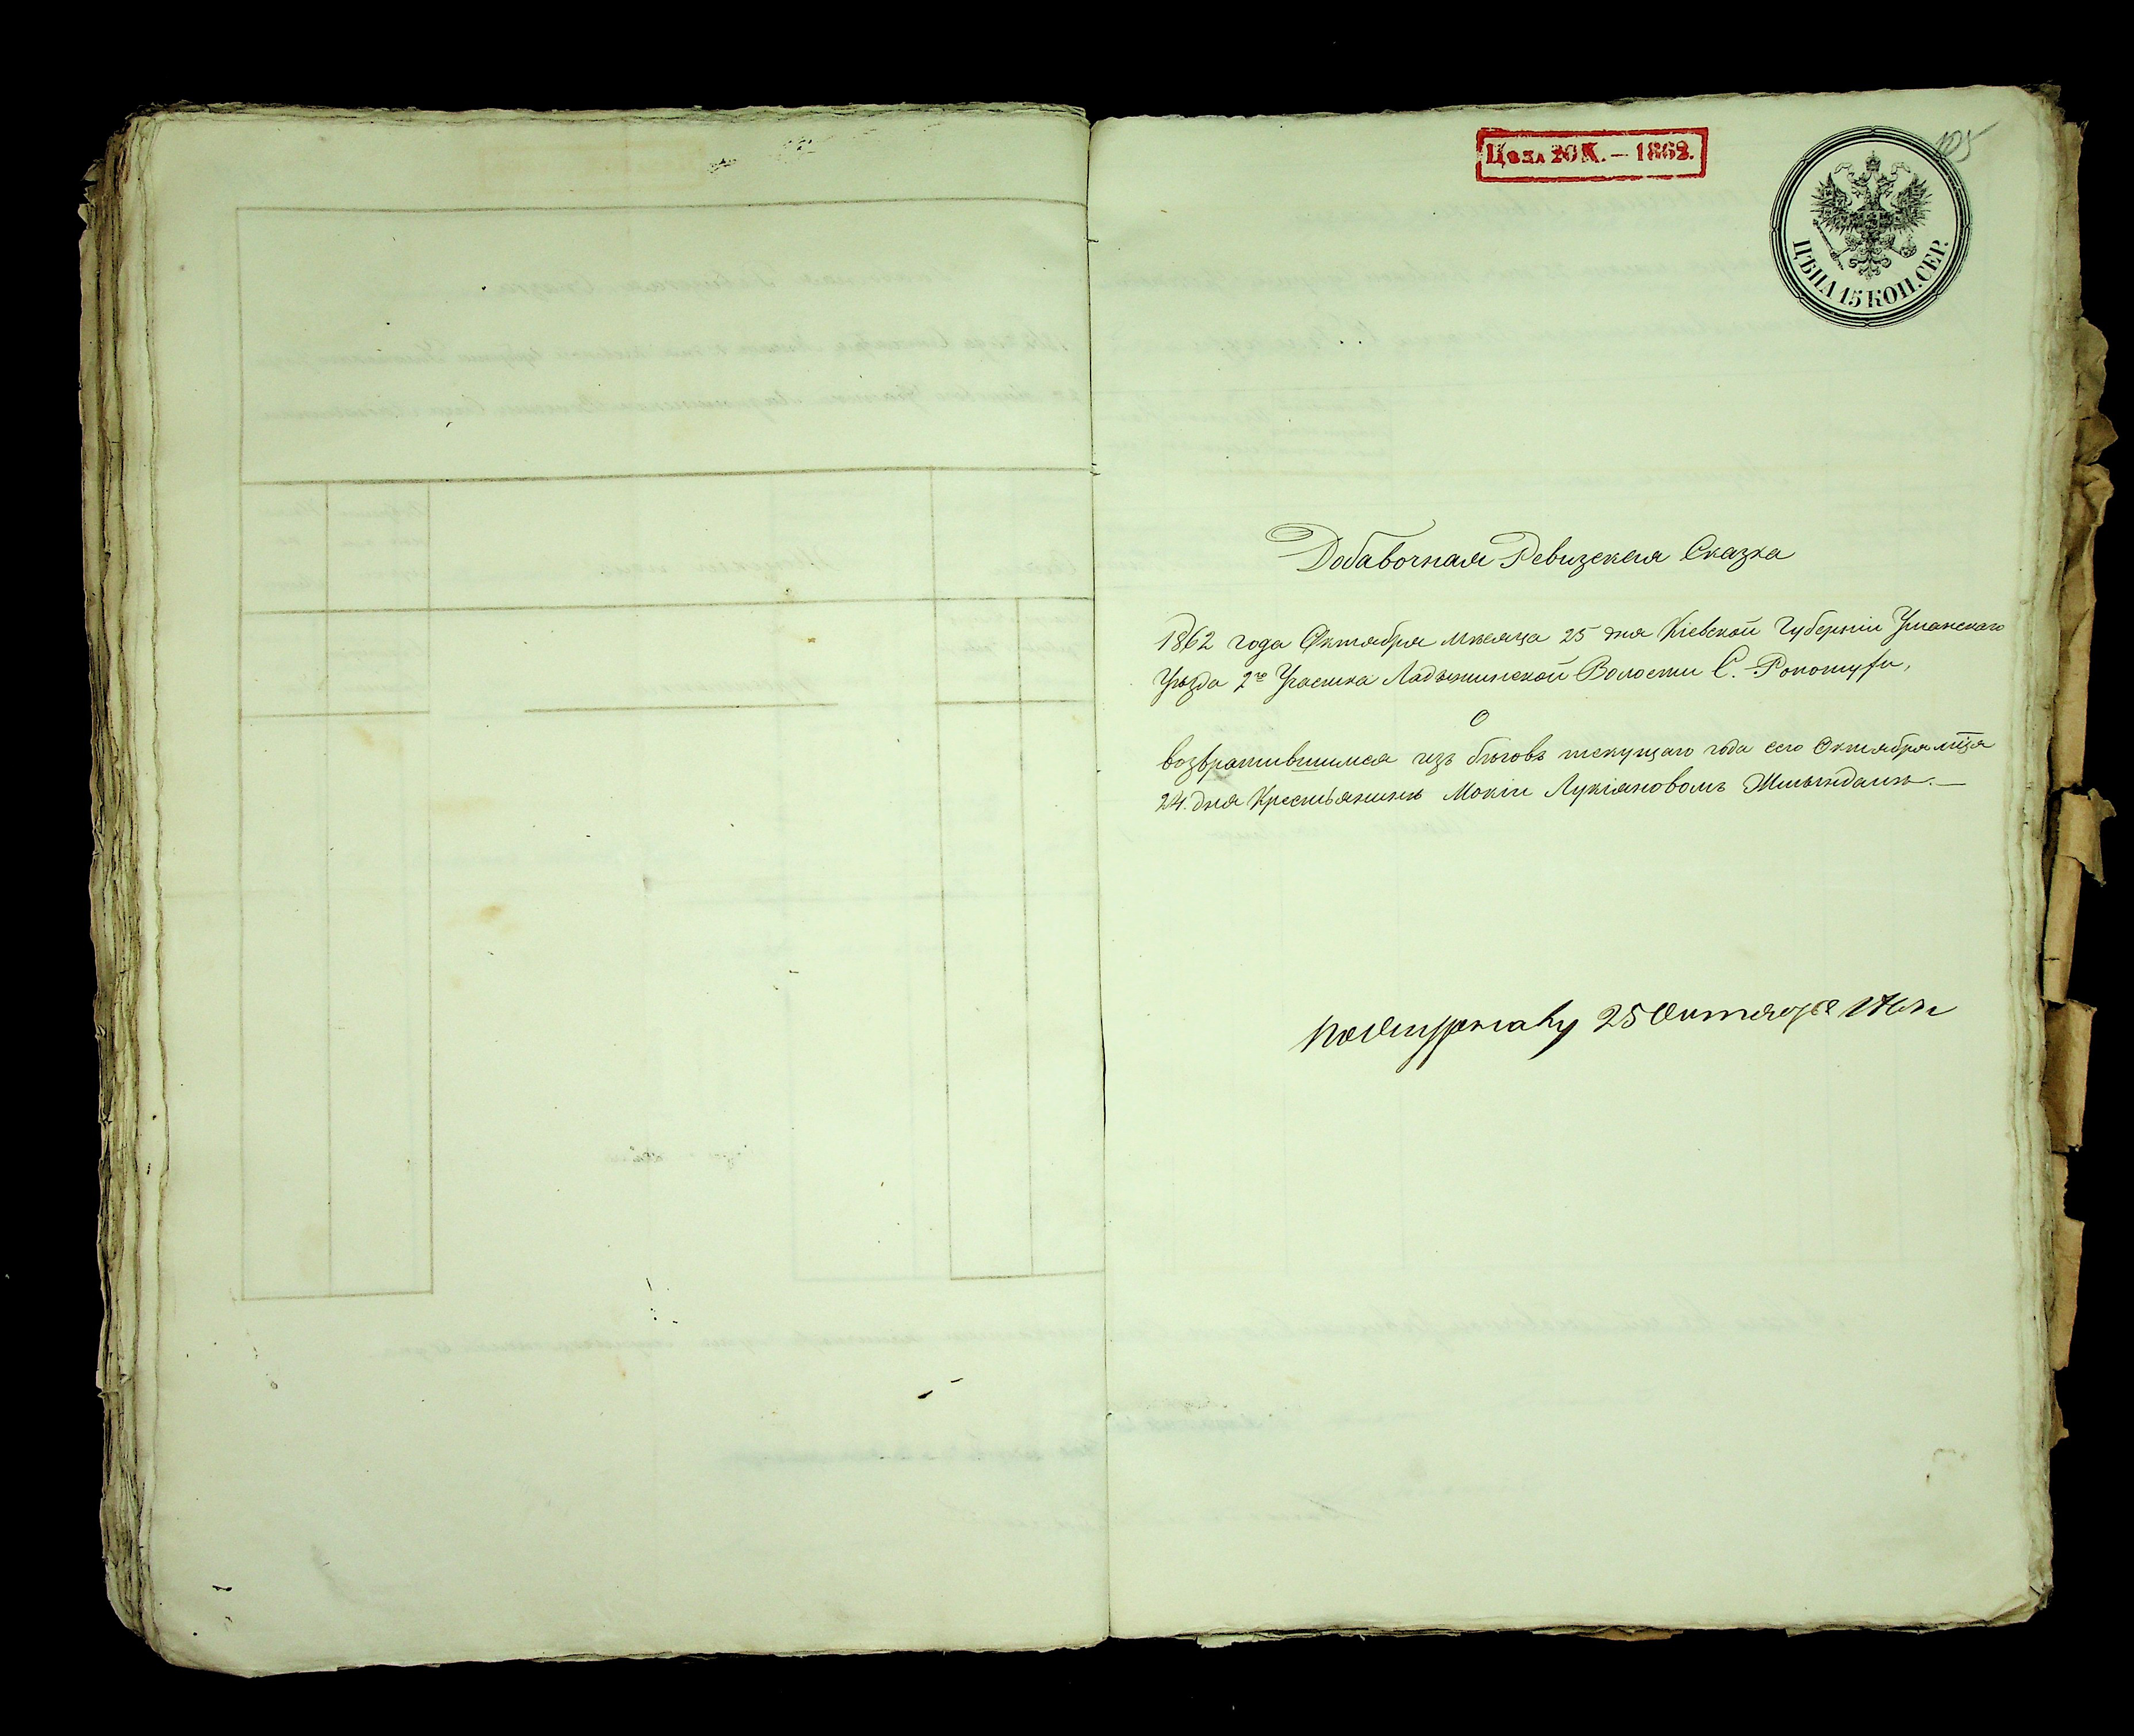 Цѣна 20 К. — 1862.
105
ЦѢНА 15 КОП. СЕР.
Добавочная Ревизская Сказка
1862 года Октября мѣсяца 25 дня Кіевской Губерніи Уманскаго
Уѣзда 2го Участка Ладыжинской Волости С.
о
возвратившимся изъ бѣговъ текущаго года сего Октября мца
24. дня Крестьянинѣ Мокіи Лукіяновомъ
25 Октября